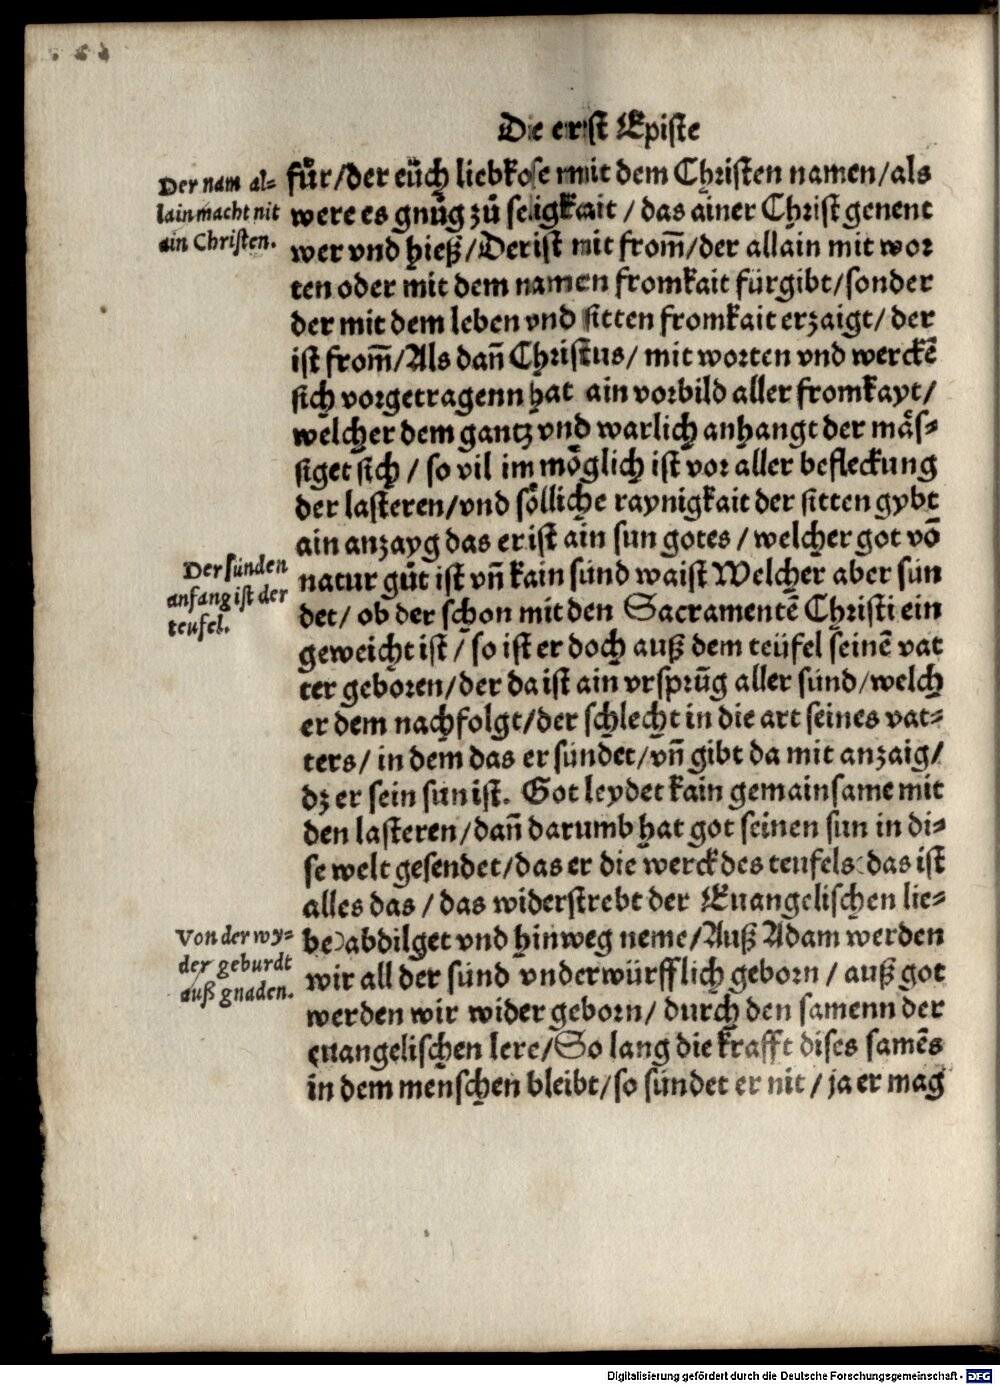 Die erst Episte
Der nam al=
lain macht nit
ain Christen.
fůr/der eüch liebkose mit dem Christen namen/als
were es gnůg zů seligkait / das ainer Christ genent
wer vnd hieß/Der ist nit from̃/der allain mit wor
ten oder mit dem namen fromkait fürgibt/sonder
der mit dem leben vnd sitten fromkait erzaigt/ der
ist from̃/Als dañ Christus/ mit worten vnd werckẽ
sich vorgetragenn hat ain vorbild aller fromkayt/
welcher dem gantz vnd warlich anhangt der mäs=
siget sich / so vil im möglich ist vor aller befleckung
der lasteren/vnd sölliche raynigkait der sitten gybt
ain anzayg das er ist ain sun gotes / welcher got võ
Der sünden
anfang ist der
teufel.
natur gůt ist vñ kain sünd waist Welcher aber sün
det/ ob der schon mit den Sacramentẽ Christi ein
geweicht ist / so ist er doch auß dem teüfel seinẽ vat
ter geboren/der da ist ain vrsprũg aller sünd/welch
er dem nachfolgt/der schlecht in die art seines vat=
ters/ in dem das er sündet/vñ gibt da mit anzaig/
dz er sein sun ist. Got leydet kain gemainsame mit
den lasteren/dañ darumb hat got seinen sun in di=
se welt gesendet/das er die werck des teufels(das ist
alles das / das widerstrebt der Euangelischen lie=
Von der wy=
der geburdt
auß gnaden.
be)abdilget vnd hinweg neme/Auß Adam werden
wir all der sünd vnderwürfflich geborn / auß got
werden wir wider geborn/ durch den samenn der
euangelischen lere/So lang die krafft dises samẽs
in dem menschen bleibt/so sündet er nit / ja er mag
Digitalisierung gefördert durch die Deutsche Forschungsgemeinschaft - DFG